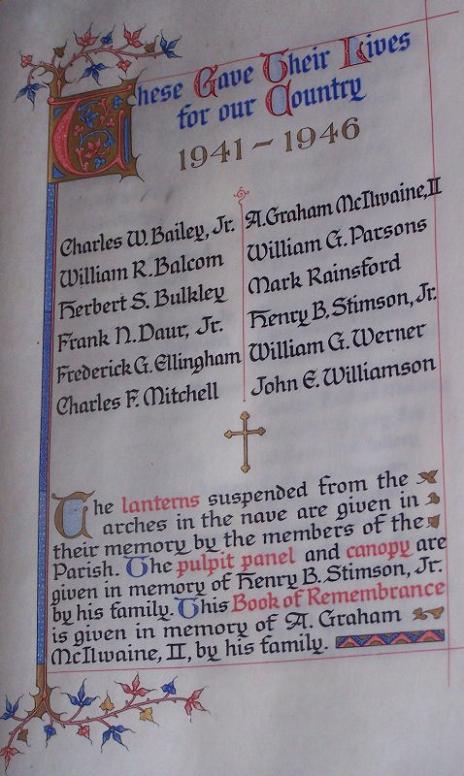 These Gave Their Lives
for our Country
1941-1946
Charles W. Bailey, Jr.
William R. Balcom
Herbert S. Bulkley
Frank N. Daur, Jr.
Frederick G. Ellingham
Charles F. Mitchell
A. Graham McIlwaine, II
William G. Parsons
Mark Rainsford
Henry B. Stimson, Jr.
William G. Werner
John E. Williamson
The lanterns suspended from the
arches in the nave are given in
their memory by the members of the
Parish. The pulpit panel and canopy are
given in memory of Henry B. Stimson, Jr.
by his family. This Book of Remembrance
is given in memory of A. Graham
McIlwaine, II, by his family.